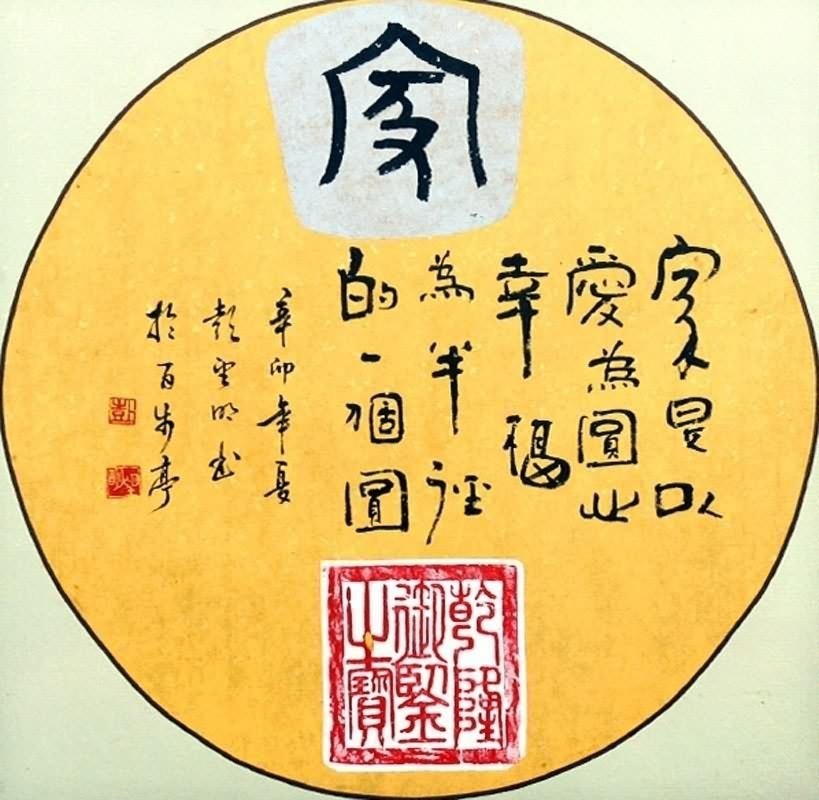 家
家是以
愛為圓心
幸福
為半徑
的一個圓
辛卯年夏
彭明书
於百步亭
彭
乾隆
御鑒
之寶